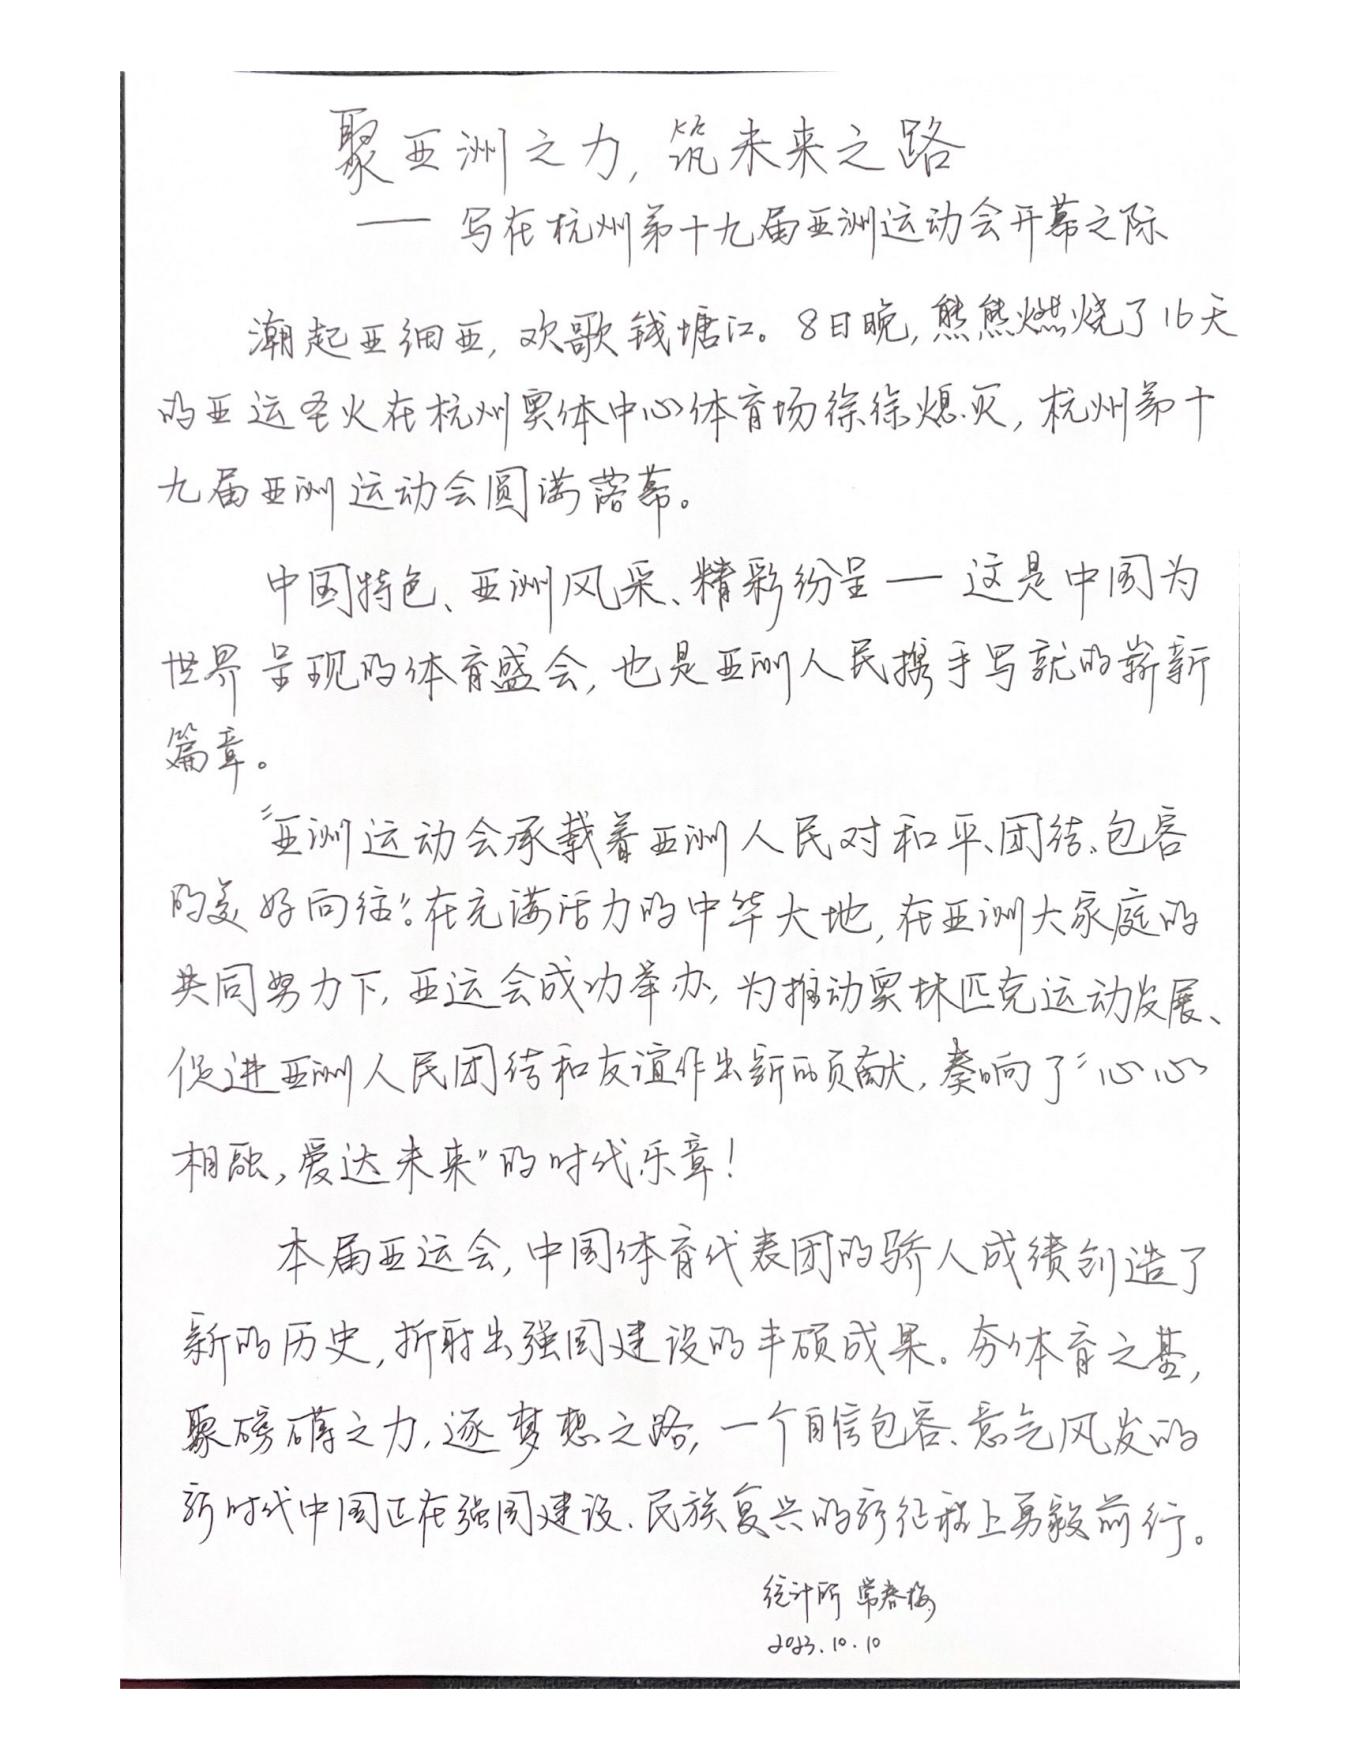 聚亚洲之力,筑未来之路
——写在杭州第十九届亚洲运动会开幕之际
潮起亚细亚,欢歌钱塘江。8日晚,熊熊燃烧了16天
的亚运圣火在杭州奥体中心体育场徐徐熄灭,杭州第十
九届亚洲运动会圆满落幕。
中国特色、亚洲风采、精彩纷呈—这是中国为
世界呈现的体育盛会,也是亚洲人民携手写就的崭新
篇章。
“亚洲运动会承载着亚洲人民对和平、团结、包容
的美好向往”。在充满活力的中华大地,在亚洲大家庭的
共同努力下,亚运会成功举办,为推动奥林匹克运动发展、
促进亚洲人民团结和友谊作出新的贡献,奏响了“心心
相融,爱达未来”的时代乐章!
本届亚运会,中国体育代表团的骄人成绩创造了
新的历史,折射出强国建设的丰硕成果。夯体育之基,
聚磅礴之力,逐梦想之路,一个自信包容、意气风发的
新时代中国正在强国建设、民族复兴的新征程上勇毅前行。
统计所 常春梅
2023.10.10